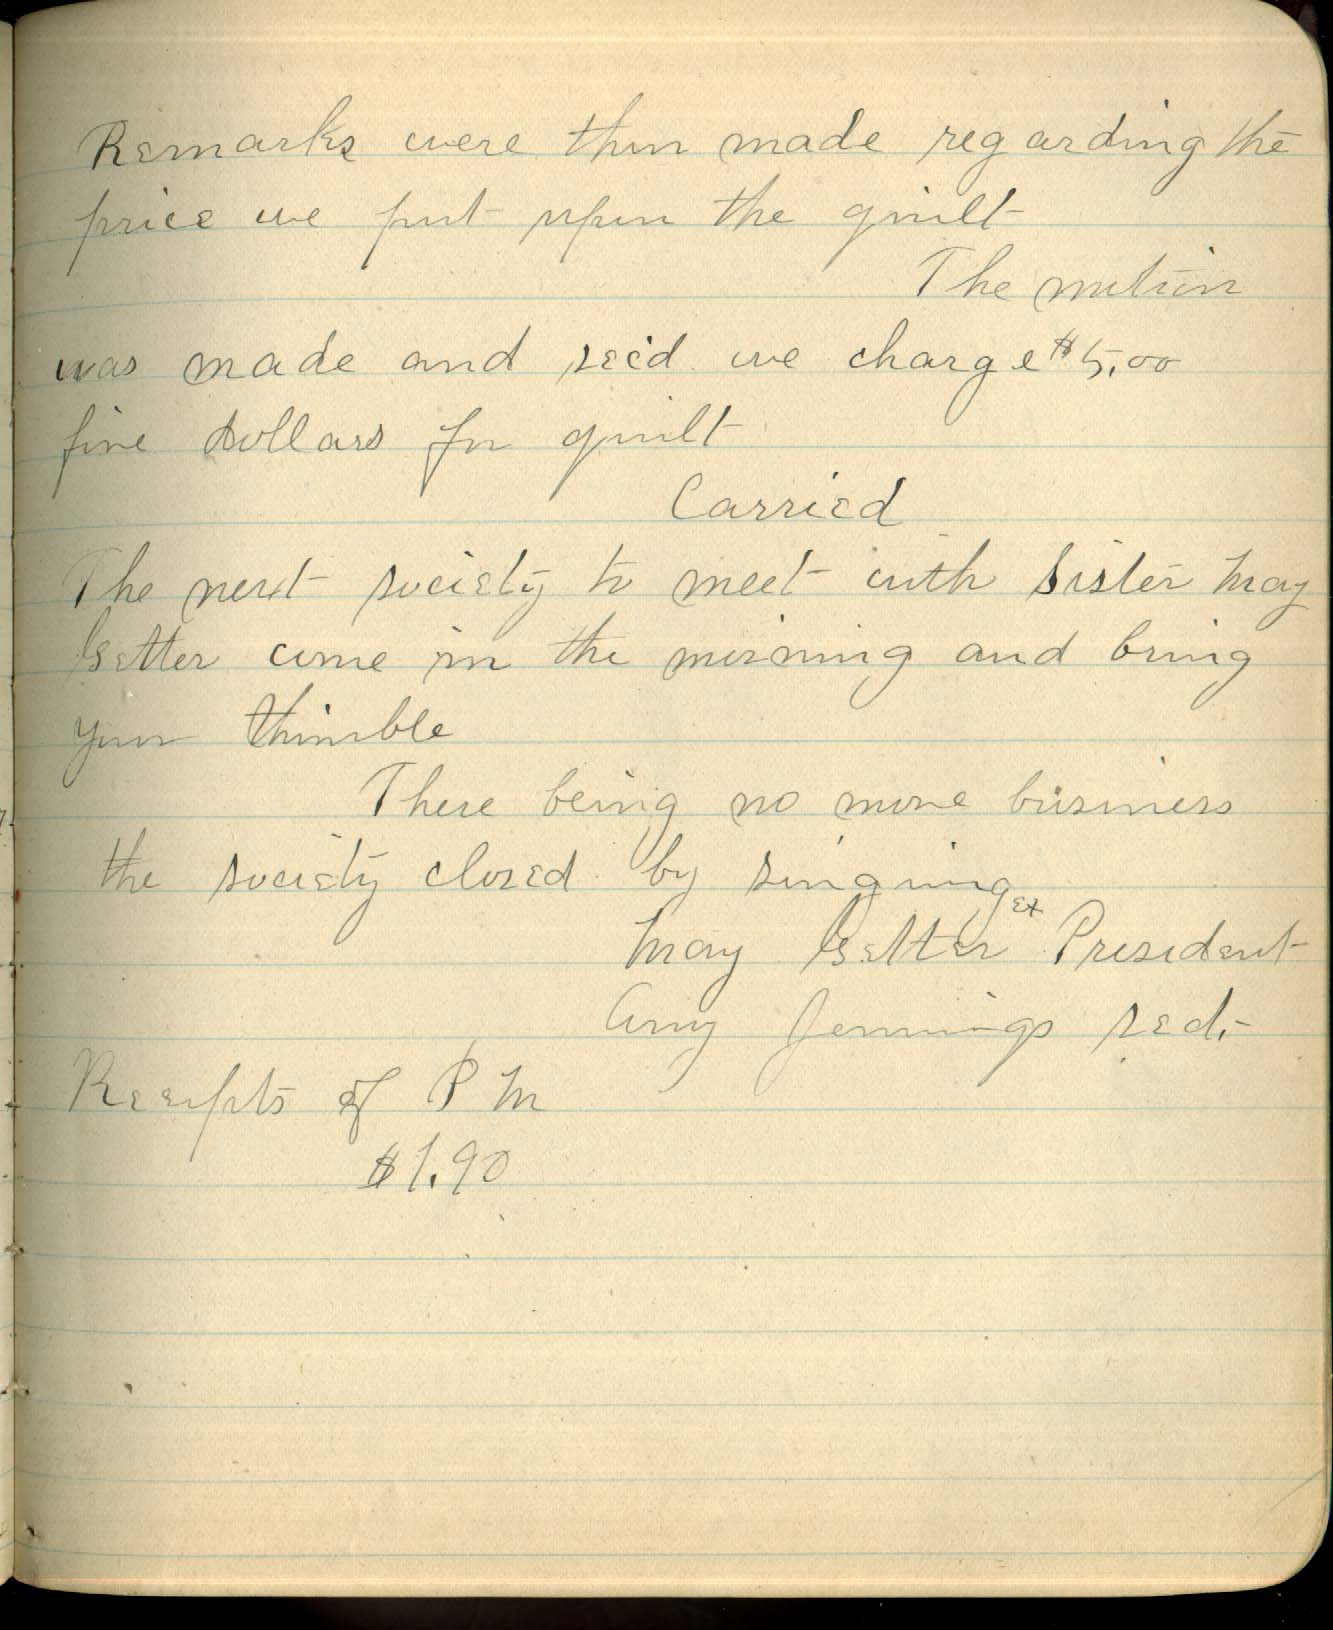 Remarks were then made regarding the
price we put upon the quilt
The motion
was made and sec'd we charge $5.00
five dollars for quilt
Carried
The next society to meet with Sister May
Getter come in the morning and bring
your thimble
There being no more business
the society closed by singing
May Getter Ex President
Amy Jennings sec.
Receipts of P M
$1.90